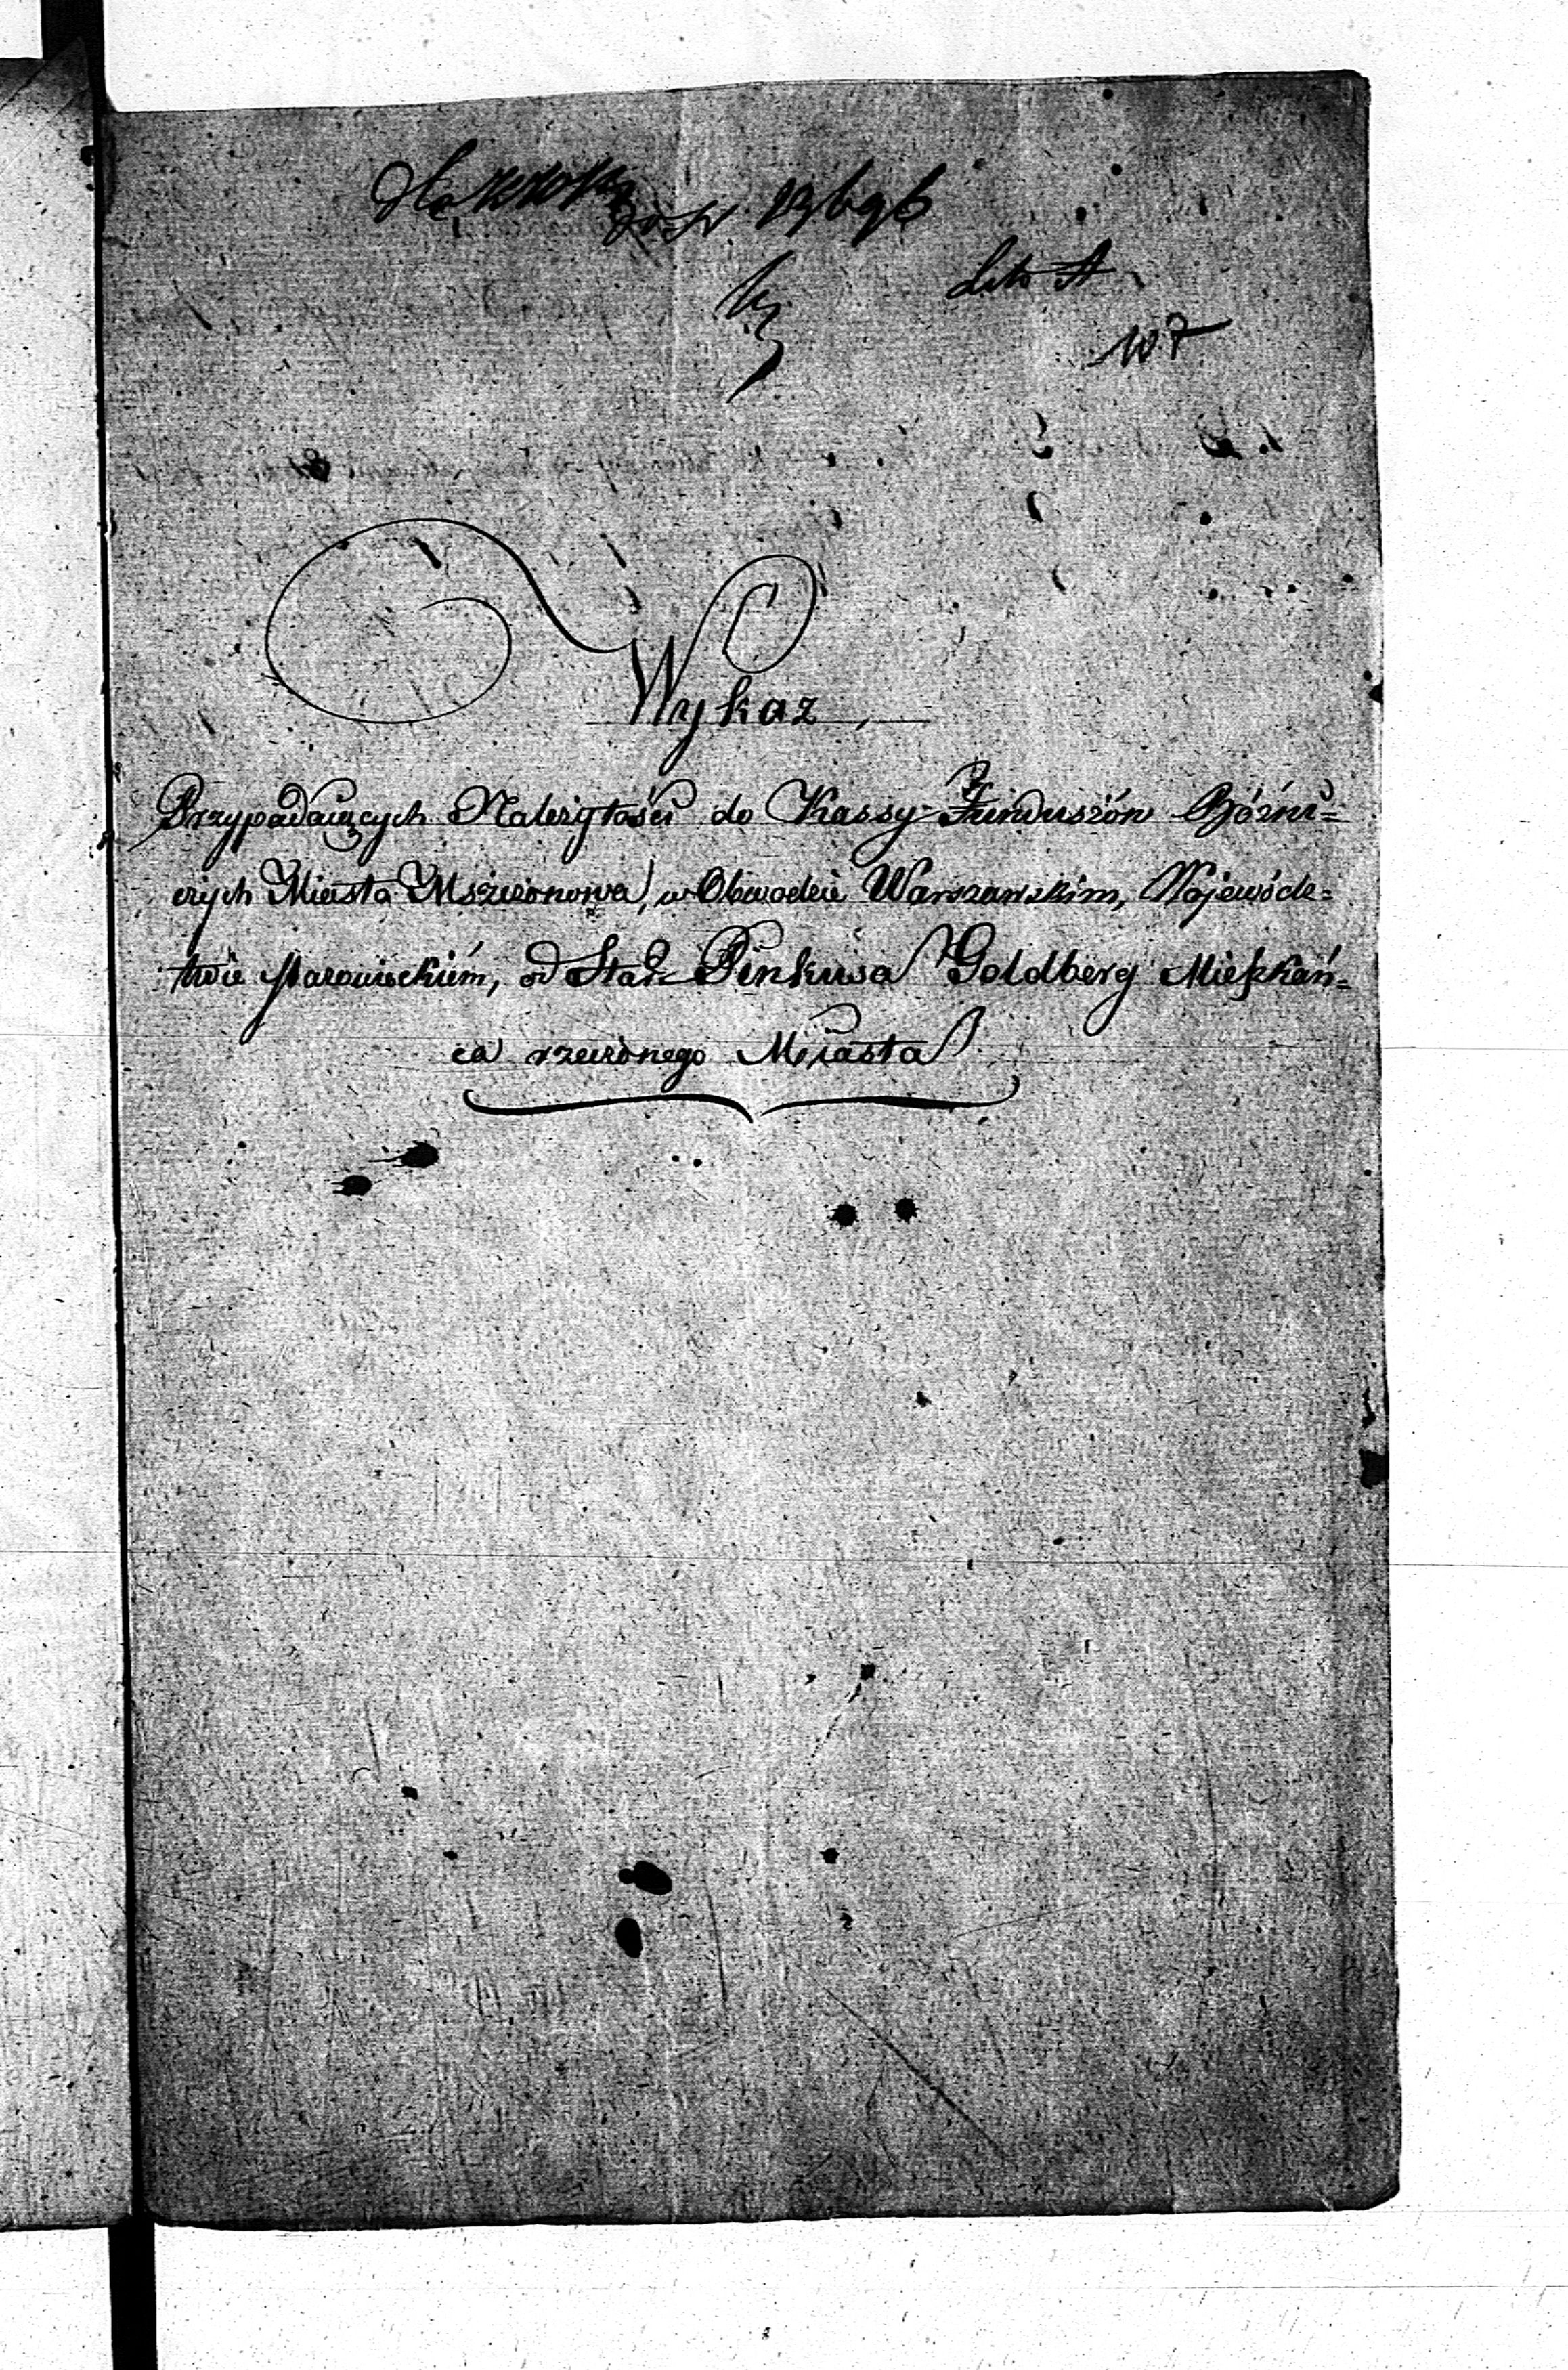 do N 23696
Litt A
107
Wykaz
Przypadaiących Należytości do Kassy Funduszów Bóżni=
czych Miasta Mszczonowa, w Obwodzie Warszawskim, Wojewódz=
twie Mazowieckiém, od Star: Pinkusa Goldberg Mieszkań=
ca rzeczonego Miasta